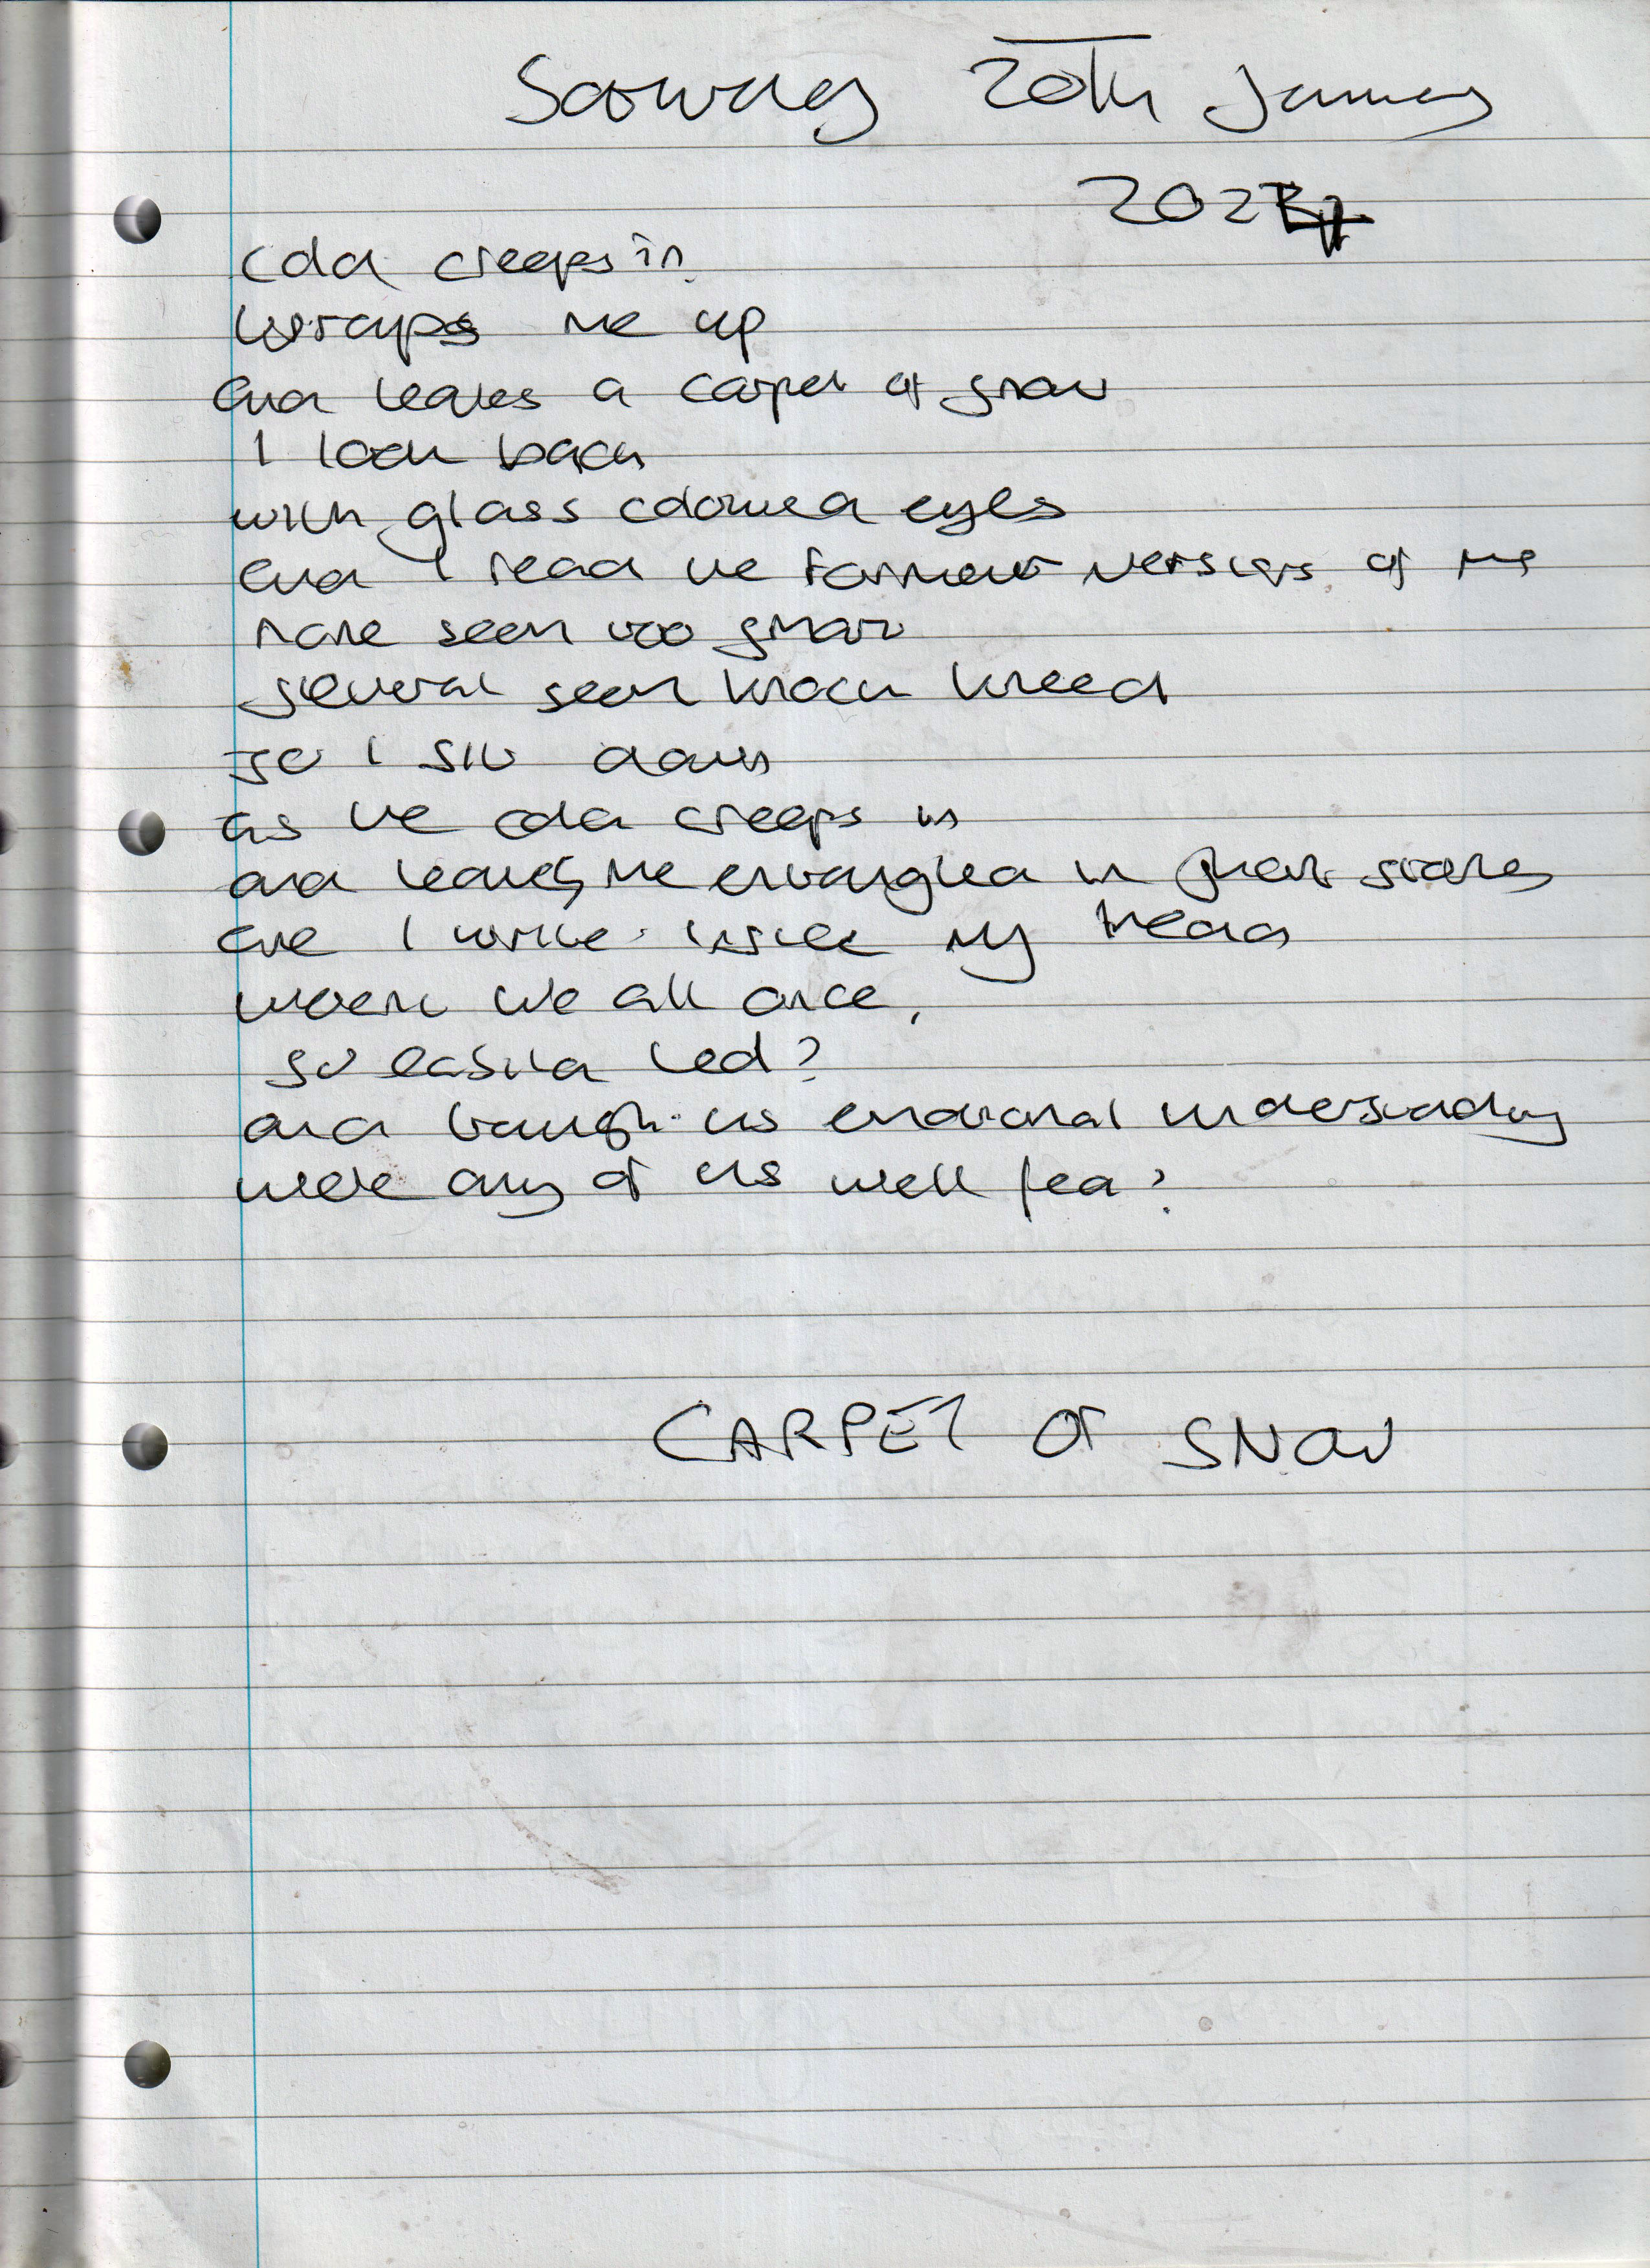 Saturday 20th January
2024
Cold creeps in
wraps me up
and leaves a carpet of snow
I look back
with glass coloured eyes
and I read the former versions of me
none seem too smart
several seem knock kneed
so I sit down
as the cold creeps in
and leaves me entangled in their stories
and I write inside my head
were we all once,
so easily led?
and through its emotional understanding
were any of us well fed?
CARPET OF SNOW